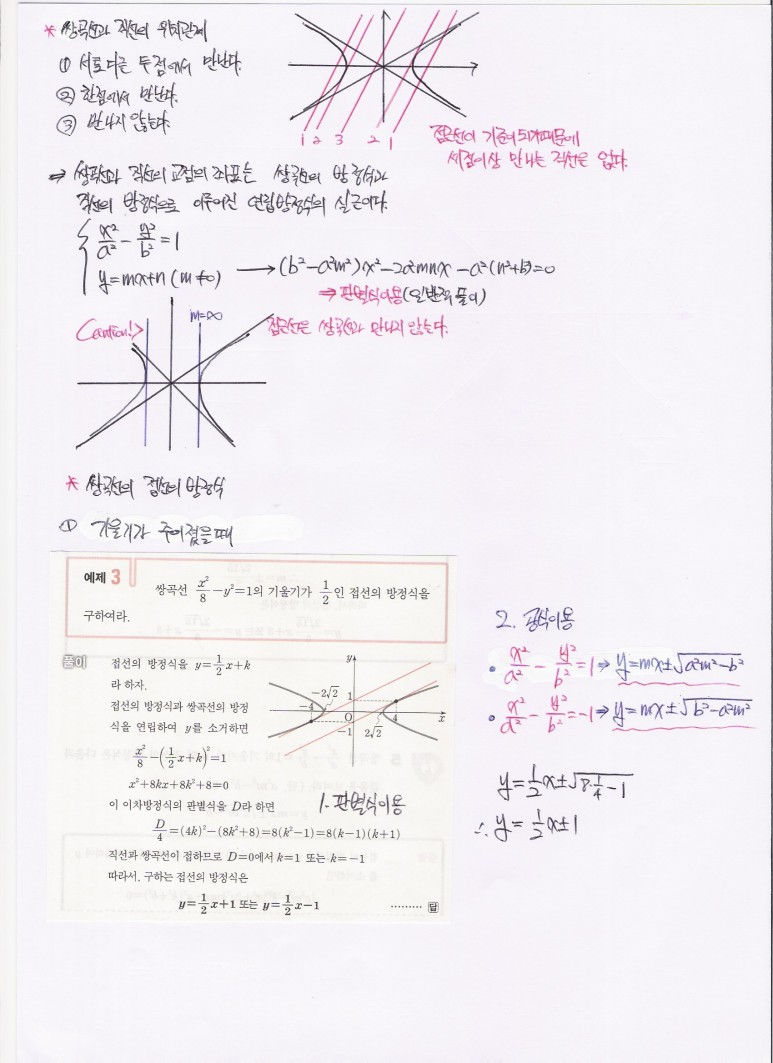 * 쌍곡선과 직선의 위치관계
① 서로다른 두점에서 만난다.
② 한점에서 만난다.
③ 만나지 않는다.
1 2 3 2 1
점근선이 기준이 되기때문에
세점이상 만나는 직선은 없다.
⇒ 쌍곡선과 직선의 교점의 좌표는 쌍곡선의 방정식과
직선의 방정식으로 이루어진 연립방정식의 실근이다.
x²/a² - y²/b² = 1
y=mx+n (m≠0) → (b²-a²m²)x²-2a²mnx-a²(n²+b²)=0
⇒ 판별식이용(일반적 풀이)
Caution!> m=∞ 점근선은 쌍곡선과 만나지 않는다.
* 쌍곡선의 접선의 방정식
① 기울기가 주어졌을때
예제 3 쌍곡선 x²/8-y²=1의 기울기가 1/2인 접선의 방정식을
구하여라.
풀이 접선의 방정식을 y=1/2x+k
라 하자.
접선의 방정식과 쌍곡선의 방정
식을 연립하여 y를 소거하면
x²/8-(1/2x+k)²=1
x²+8kx+8k²+8=0
이 이차방정식의 판별식을 D라 하면
D/4=(4k)²-(8k²+8)=8(k²-1)=8(k-1)(k+1)
직선과 쌍곡선이 접하므로 D=0에서 k=1 또는 k=-1
따라서, 구하는 접선의 방정식은
y=1/2x+1 또는 y=1/2x-1 ········· 답
y
-2√2
1
-4
O
4
x
-1
2√2
1. 판별식이용
2. 공식이용
• x²/a² - y²/b² = 1 ⇒ y=mx±√a²m²-b²
• x²/a² - y²/b² = -1 ⇒ y=mx±√b²-a²m²
y=1/2x±√8·1/4-1
∴ y=1/2x±1